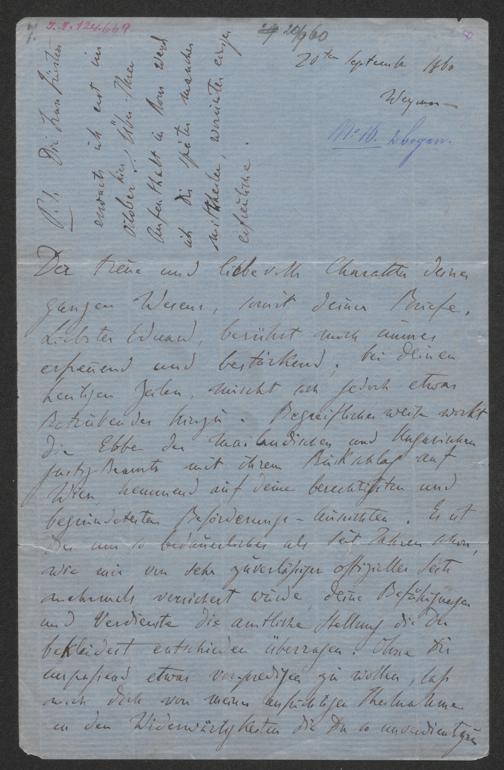 7.
I.I. 124.669
20/9 60
20ten September 1860
Weymar
No. 10. 2 Bogen.
P. S. Die Frau Fürstin
erwarte ich erst im
October hier. Über Ihren
Aufenthalt in Rom werd
ich dir später manches
mittheilen, worunter einiges
erfreuliche.
Der treue und liebevolle Charakter deines
ganzen Wesens, somit deiner Briefe,
Liebster Eduard, berührt mich immer
erfreuend und bestärkend; bei deinen
heutigen Zeilen, mischt sich jedoch etwas
Betrübendes hinzu. Begreiflicher weise wirkt
die Ebbe der Mailändischen und Ungarischen
Justiz-Beamte mit ihrem Rückschlag auf
Wien hemmend auf deine berechtigten und
begründetesten Beförderungs-Aussichten. Es ist
dies um so bedauerlicher als seit Jahren schon,
wie mir von sehr zuverlässiger offizieller Seite
mehrmals versichert wurde deine Befähigungen
und Verdienste die amtliche Stellung die du
bekleidest entschieden überragen. Ohne Dir
unpassend etwas vorpredigen zu wollen, lass
mich dich von meiner aufrichtigen Theilnahme
an den Widerwärtigkeiten die Du so unverdient